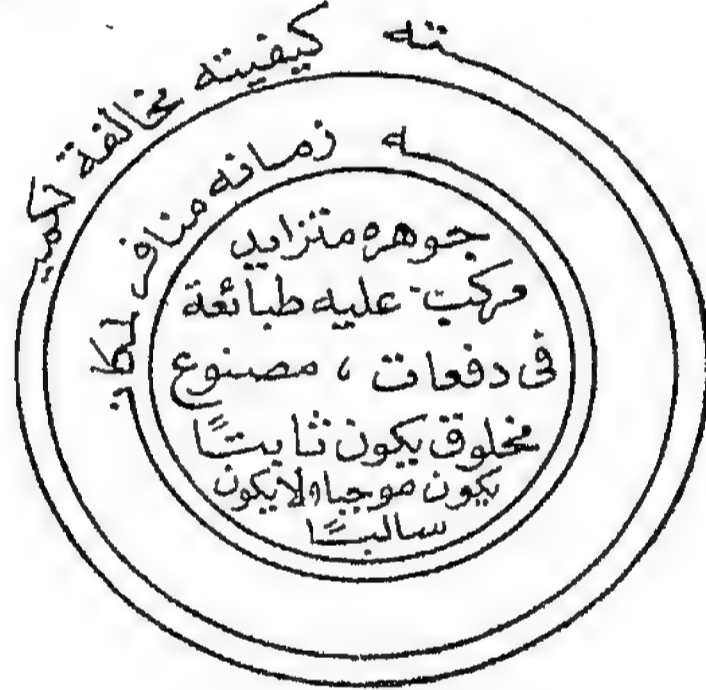 كيفيته مخالفة لكميته
زمانه منافر لمكانه
جوهره متزايد
مركب عليه طبائعة
فى دفعات ، مصنوع
مخلوق يكون ثابتًا
يكون موجبا ولايكون
سالبًا